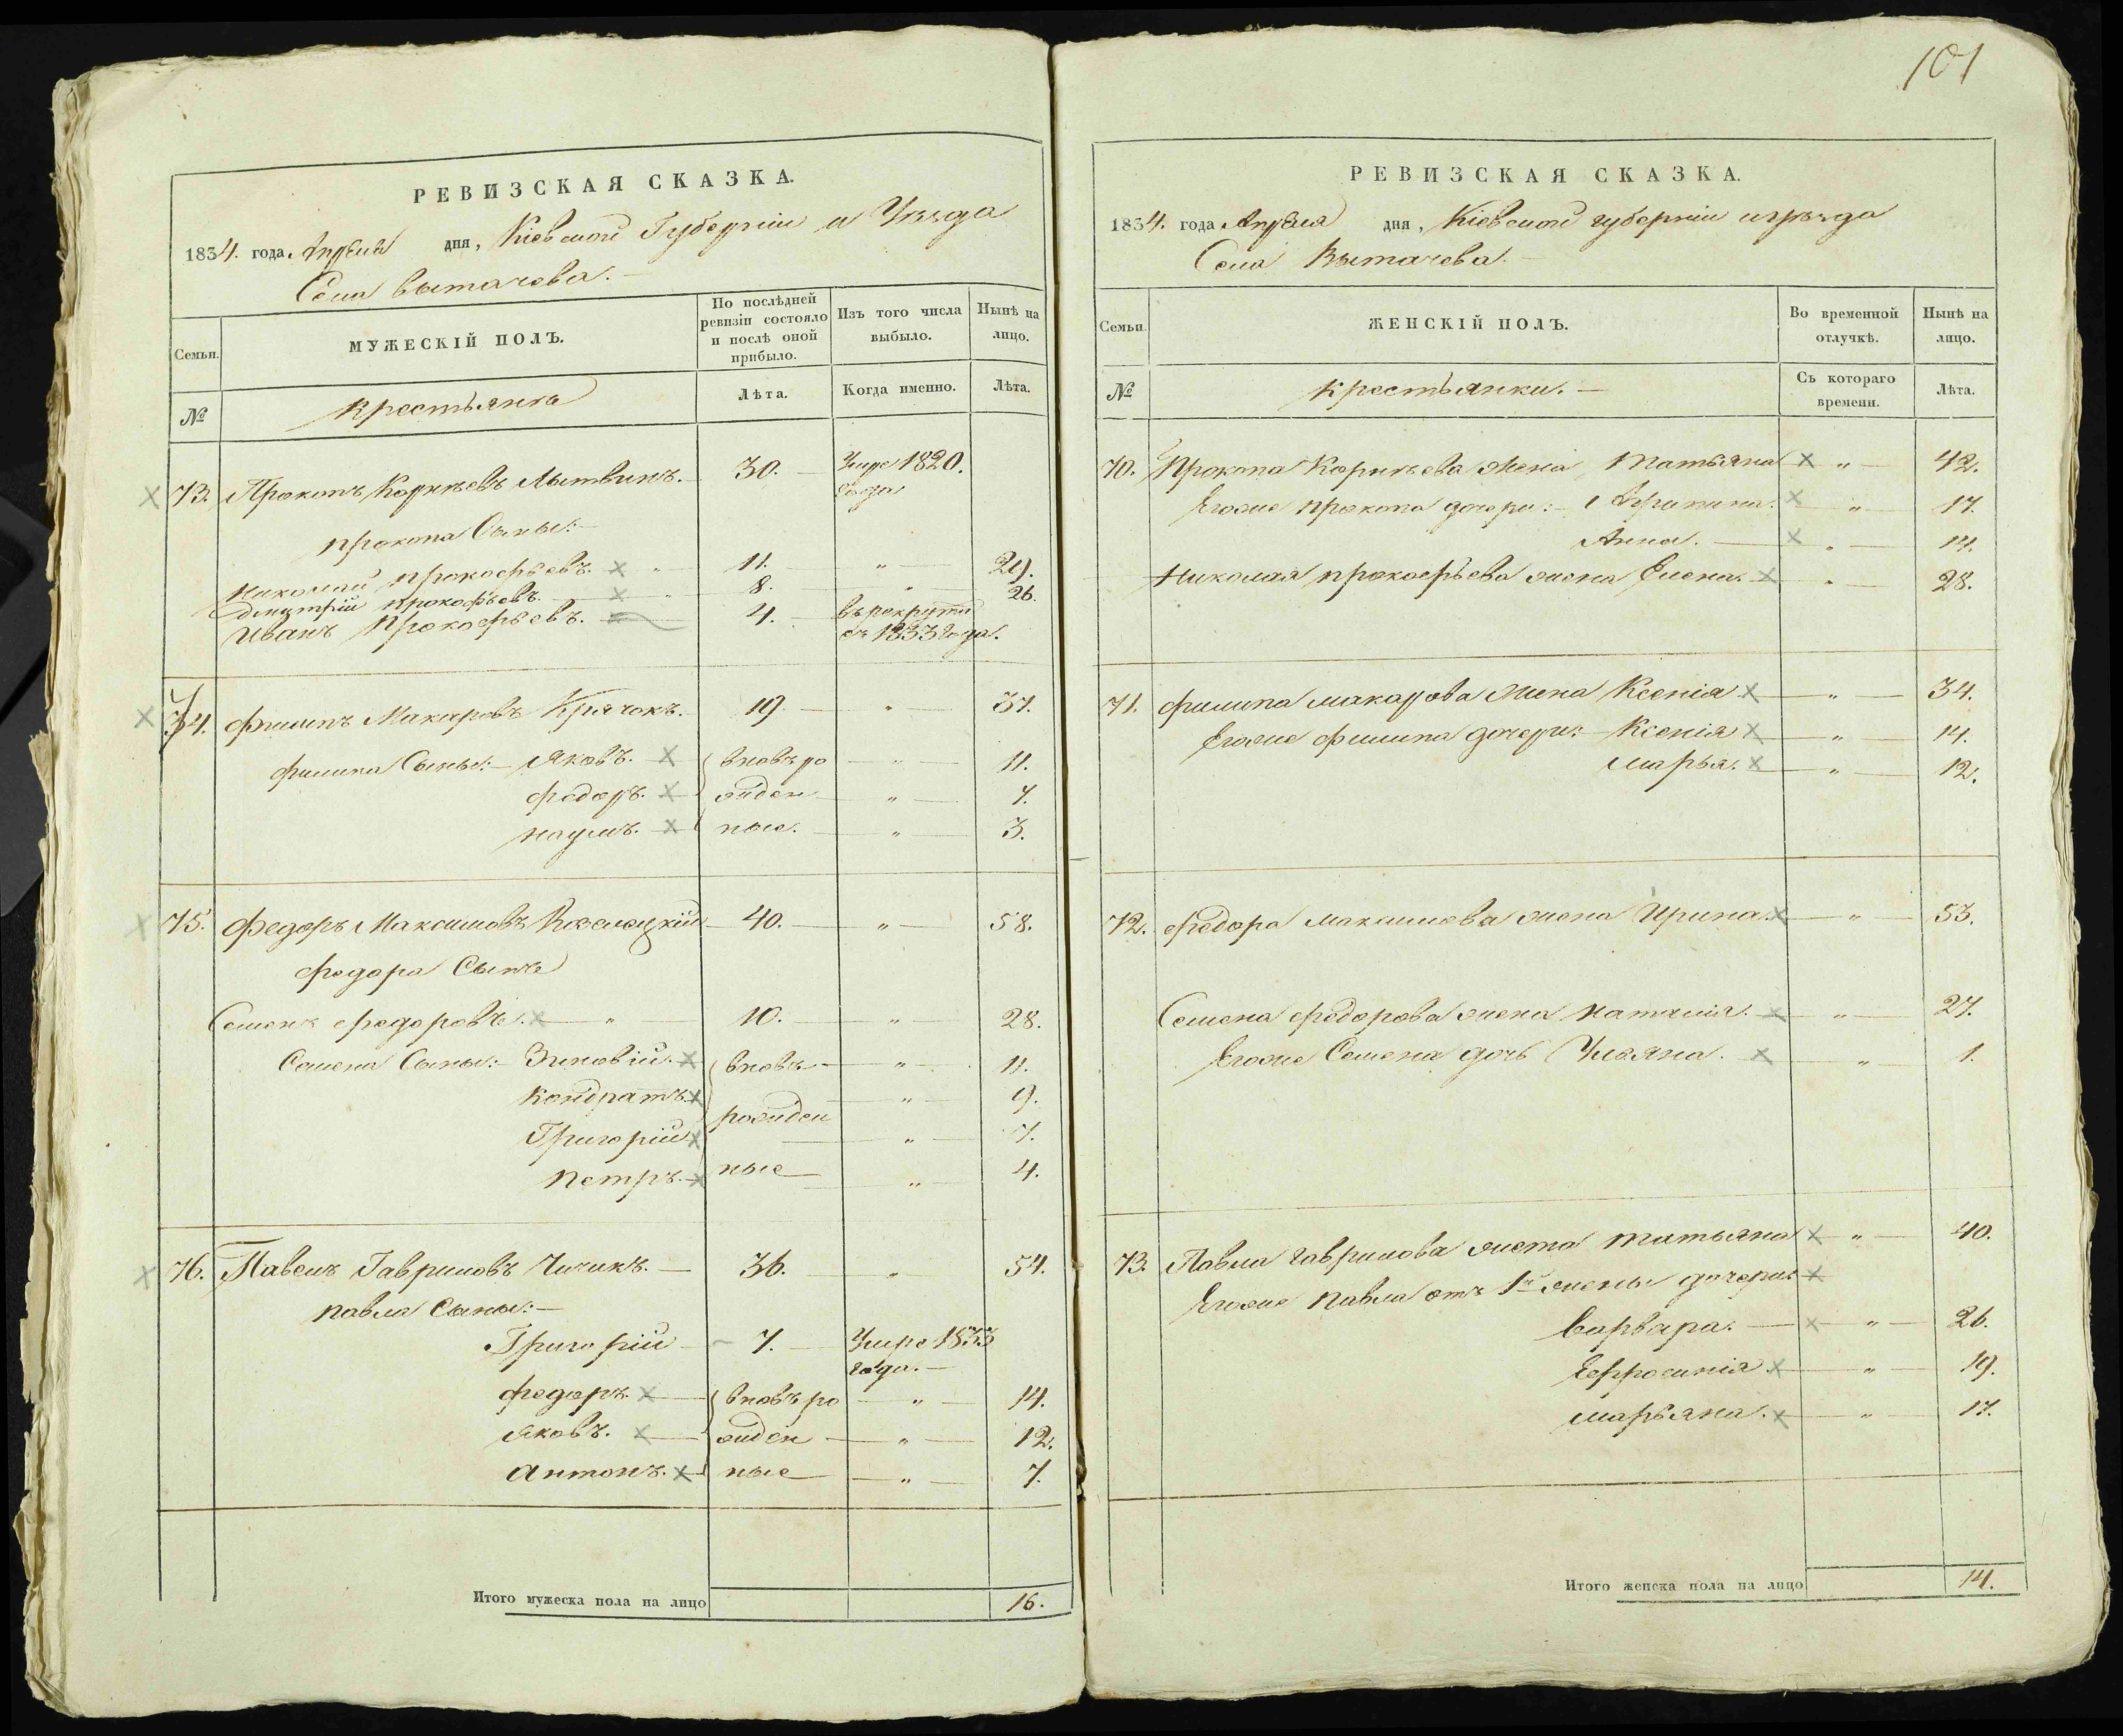 РЕВИЗСКАЯ СКАЗКА.
1834. года Апреля дня, Кіевской Губерніи и Уѣзда
Села Вытачева.
Семьи.
МУЖЕСКІЙ ПОЛЪ.
По послѣдней ревизіи состояло и послѣ оной прибыло.
Изъ того числа выбыло.
Нынѣ на лицо.
№
крестьянъ
Лѣта.
Когда именно.
Лѣта.
73. Прокопъ Корнѣевъ Лытвинъ. 30. Умре 1820.
года
прокопа Сыны:
Николай прокофьевъ. 11. „ 29.
дмитрій прокофьевъ. 8. „ 26.
Иванъ Прокофьевъ. 4. въ рекруты
съ 1833 года.
74. Филипъ Макаровъ Крячокъ. 19 „ 37.
филипа Сыны: Яковъ. вновь ро „ 11.
федоръ. жден „ 7.
наумъ. ные. „ 3.
75. Федоръ Максимовъ 40. „ 58.
федора Сынъ
Семенъ федоровъ. „ 10. „ 28.
Семена Сыны: Зиновій. вновь „ 11.
Кондратъ. „ 9.
рожден
Григорій „ 7.
Петръ. ные „ 4.
76. Павелъ Гавриловъ Чичикъ. 36. „ 54.
павла Сыны:
Григорій 7. Умре 1833
года.
федоръ. вновь ро „ 14.
Яковъ. жден „ 12.
Антонъ. ные „ 7.
Итого мужеска пола на лицо 16.
101
РЕВИЗСКАЯ СКАЗКА.
1834. года Апреля дня, Кіевской губерніи и уѣзда
Села Вытачева.
Семьи.
ЖЕНСКІЙ ПОЛЪ.
Во временной отлучкѣ.
Нынѣ на лицо.
№
крестьянки.
Съ котораго времени.
Лѣта.
70. Прокопа Корнѣева жена Татьяна „ 42.
Егоже прокопа дочери: Агрипина. „ 17.
Анна. „ 14.
Николая прокофьева жена Елена. „ 28.
71. филипа макарова жена Ксенія „ 34.
Егоже филипа дочери: Ксенія „ 14.
марья. „ 12.
72. федора максимова жена Ирина. „ 53.
Семена федорова жена наталія. „ 27.
Егоже Семена дочь Ульяна. „ 1.
73. Павла гаврилова жена татьяна „ 40.
Егоже павла отъ 1й жены дочери:
Варвара. „ 26.
Ефросинія „ 19.
марьяна. „ 17.
Итого женска пола на лицо 14.